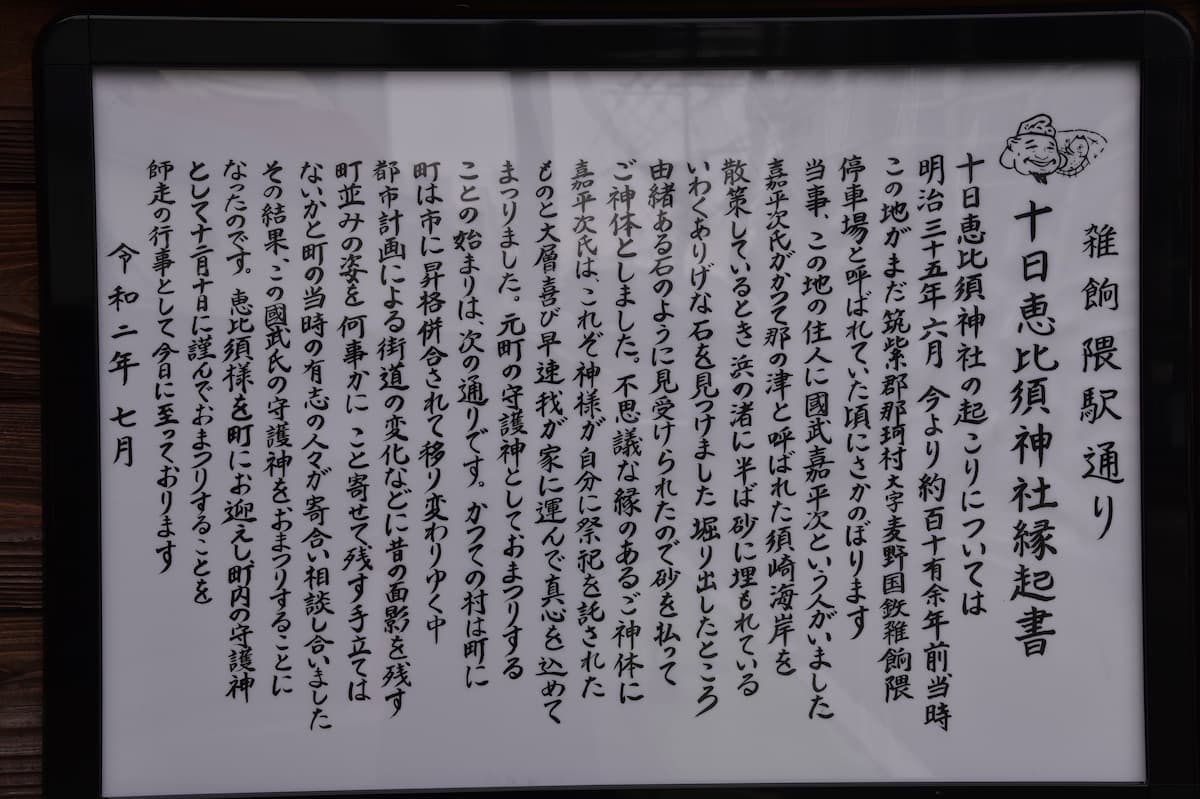 雑餉隈駅通り
十日恵比須神社縁起書
十日恵比須神社の起こりについては
明治三十五年六月 今より約百十有余年前、当時
この地がまだ筑紫郡那珂村大字麦野国鉄雑餉隈
停車場と呼ばれていた頃にさかのぼります
当事、この地の住人に國武嘉平次という人がいました
嘉平次氏がかつて那の津と呼ばれた須崎海岸を
散策しているとき浜の渚に半ば砂に埋もれている
いわくありげな石を見つけました 堀り出したところ
由緒ある石のように見受けられたので砂を払って
ご神体としました。不思議な縁のあるご神体に
嘉平次氏は、これぞ神様が自分に祭祀を託された
ものと大層喜び早速我が家に運んで真心を込めて
まつりました。元町の守護神としておまつりする
ことの始まりは、次の通りです。かつての村は町に
町は市に昇格併合されて移り変わりゆく中
都市計画による街道の変化などに昔の面影を残す
町並みの姿を何事かにこと寄せて、残す手立ては
ないかと町の当時の有志の人々が寄合い相談し合いました
その結果、この國武氏の守護神をおまつりすることに
なったのです。恵比須様を町にお迎えし、町内の守護神
として十二月十日に謹んでおまつりすることを
師走の行事として今日に至っております
令和二年 七月